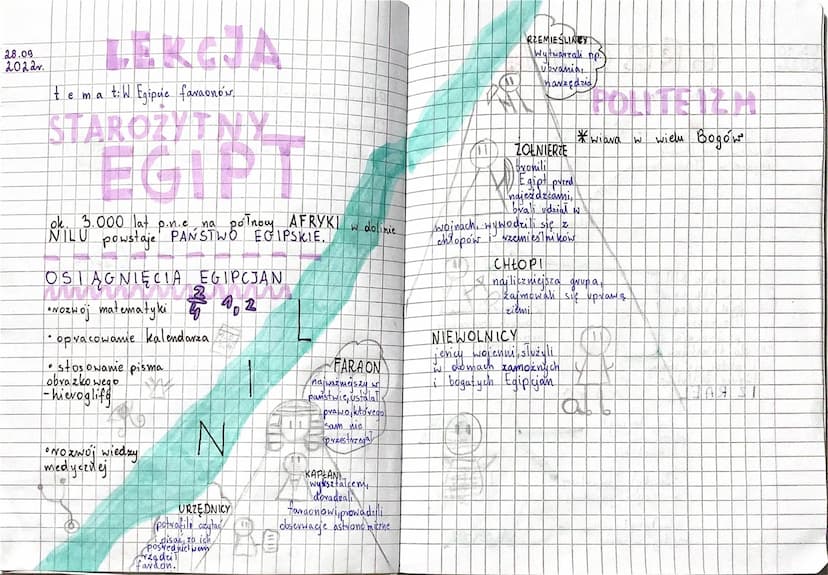 28.09
2022r.
LEKCJA
temat: W Egipcie faraonów.
STAROŻYTNY
EGIPT
ok. 3.000 lat p.n.e. na północy AFRYKI w dolinie
NILU powstaje PAŃSTWO EGIPSKIE.
OSIĄGNIĘCIA EGIPCJAN
•rozwój matematyki 2/4 1,2
• opracowanie kalendarza
• stosowanie pisma
obrazkowego
-hieroglify
•rozwój wiedzy
medycznej
NIL
FARAON
najważniejszy w
państwie, ustalał
prawo, którego
sam nie
przestrzegał
KAPŁANI
wykształceni,
doradzali
faraonowi, prowadzili
obserwacje astronomiczne
URZĘDNICY
potrafili czytać
i pisać, za ich
pośrednictwem
rządził
faraon.
RZEMIEŚLNICY
wytwarzali np.
ubrania,
narzędzia
ŻOŁNIERZE
bronili
Egipt przed
najeźdźcami,
brali udział w
wojnach, wywodzili się z
chłopów i rzemieślników
CHŁOPI
najliczniejsza grupa,
zajmowali się uprawą
ziemi.
NIEWOLNICY
jeńcy wojenni, służyli
w domach zamożnych
i bogatych Egipcjan
POLITEIZM
*wiara w wielu Bogów